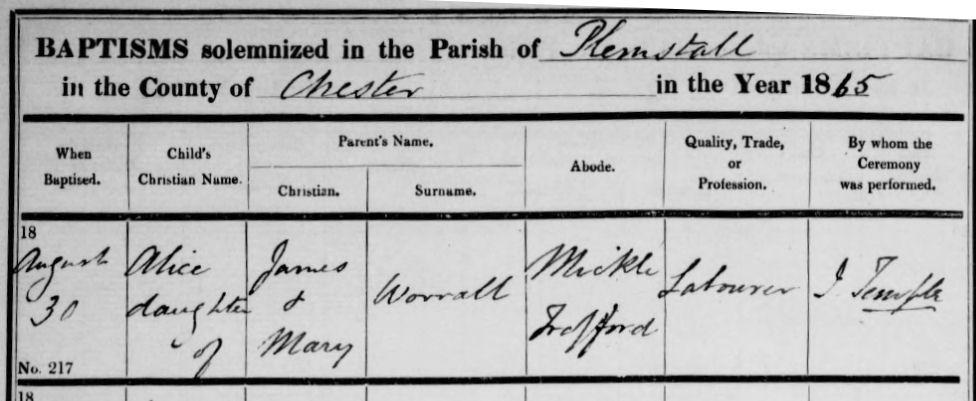 BAPTISMS solemnized in the Parish of Plemstall
in the County of Chester in the Year 1865
When Baptised.
Child's Christian Name.
Parent's Name.
Christian.
Surname.
Abode.
Quality, Trade, or Profession.
By whom the Ceremony was performed.
18
August
30
No. 217
Alice
daughter
of
James
&
Mary
Worrall
Mickle
Trafford
Labourer
I Temple
18